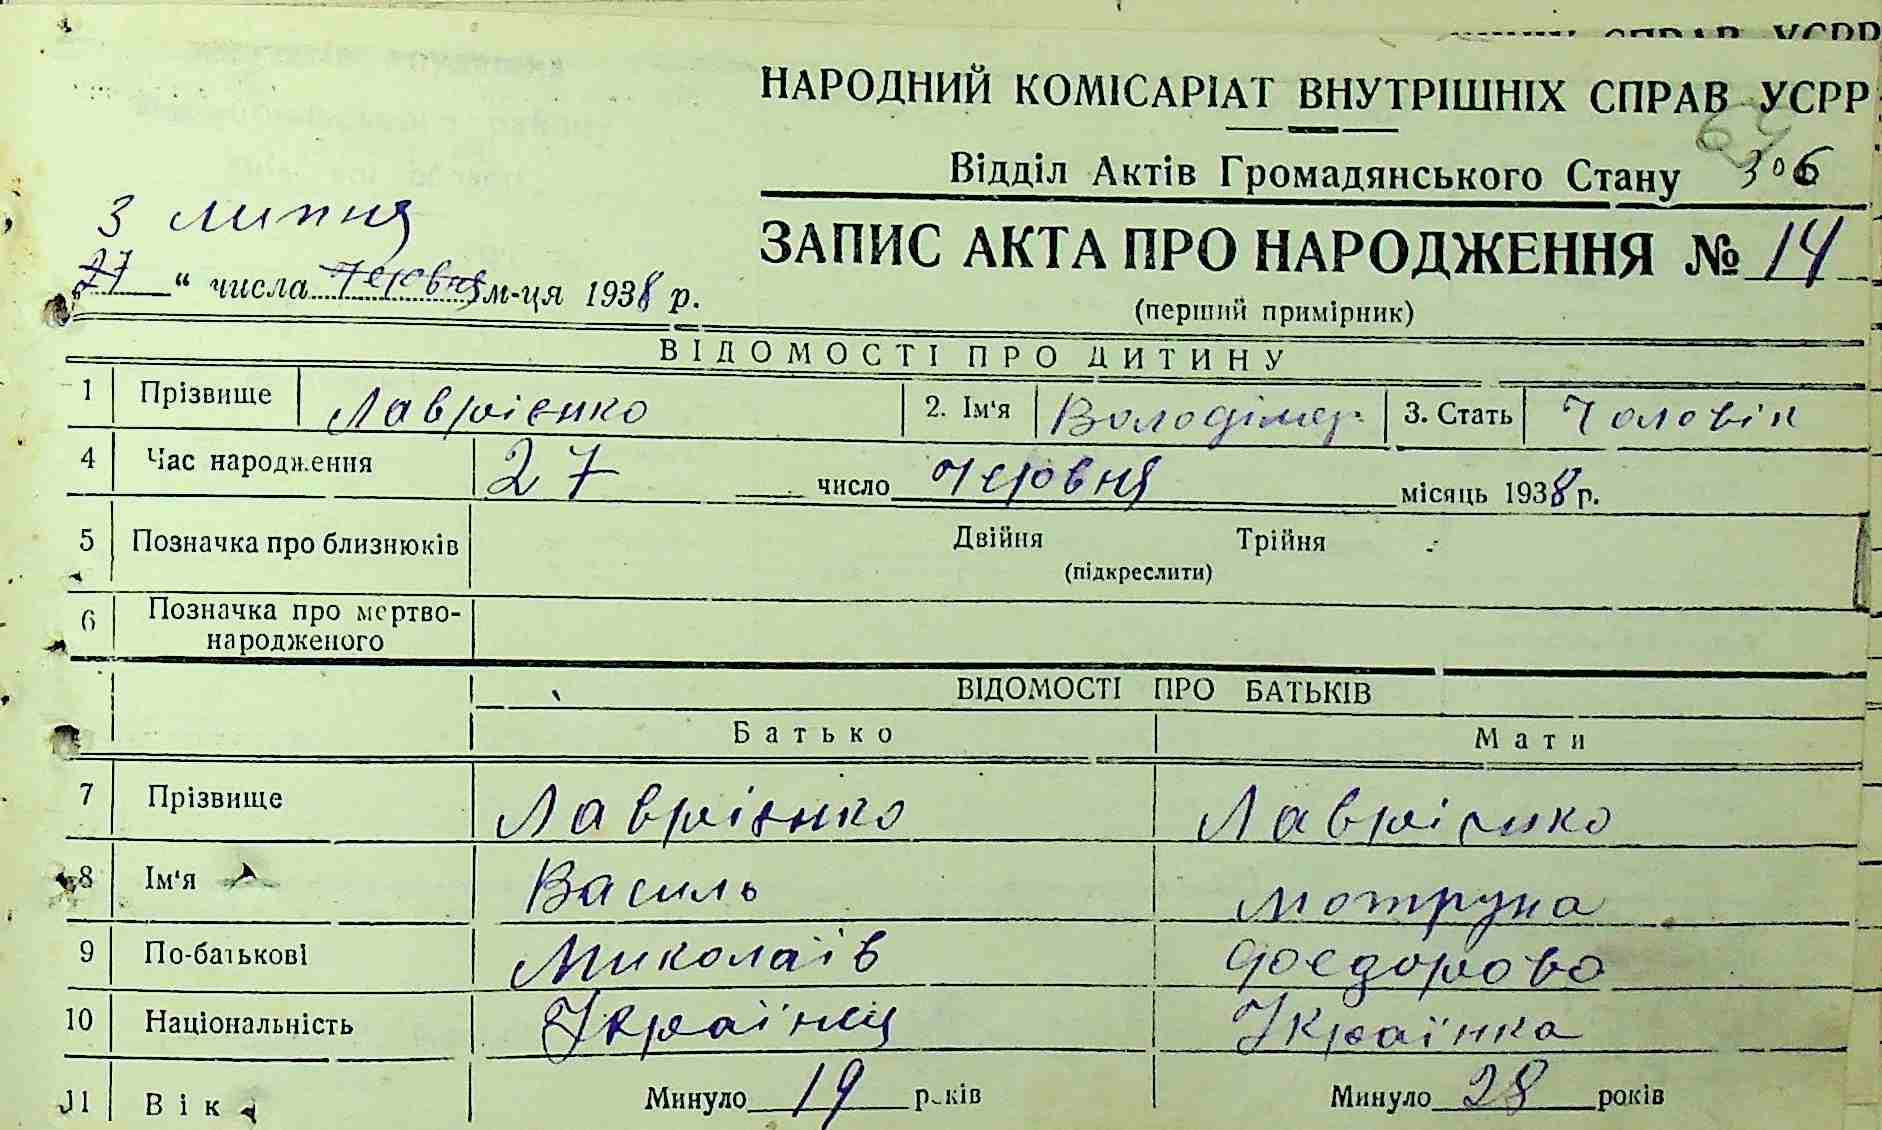 НАРОДНИЙ КОМІСАРІАТ ВНУТРІШНІХ СПРАВ УСРР
69
Відділ Актів Громадянського Стану 306
3 липня
ЗАПИС АКТА ПРО НАРОДЖЕННЯ № 14
27 “ числа червня м-ця 1938 р.
(перший примірник)
ВІДОМОСТІ ПРО ДИТИНУ
1 Прізвище Лаврієнко 2. Ім'я Володімер 3. Стать Чоловік
4 Час народження 27 число червня місяць 1938 р.
5 Позначка про близнюків Двійня Трійня
(підкреслити)
6 Позначка про мертво-
народженого
ВІДОМОСТІ ПРО БАТЬКІВ
Батько Мати
7 Прізвище Лаврієнко Лаврієнко
8 Ім'я Василь Мотруна
9 По-батькові Миколаїв Фоєдорово
10 Національність Українец Українка
11 Вік Минуло 19 років Минуло 28 років